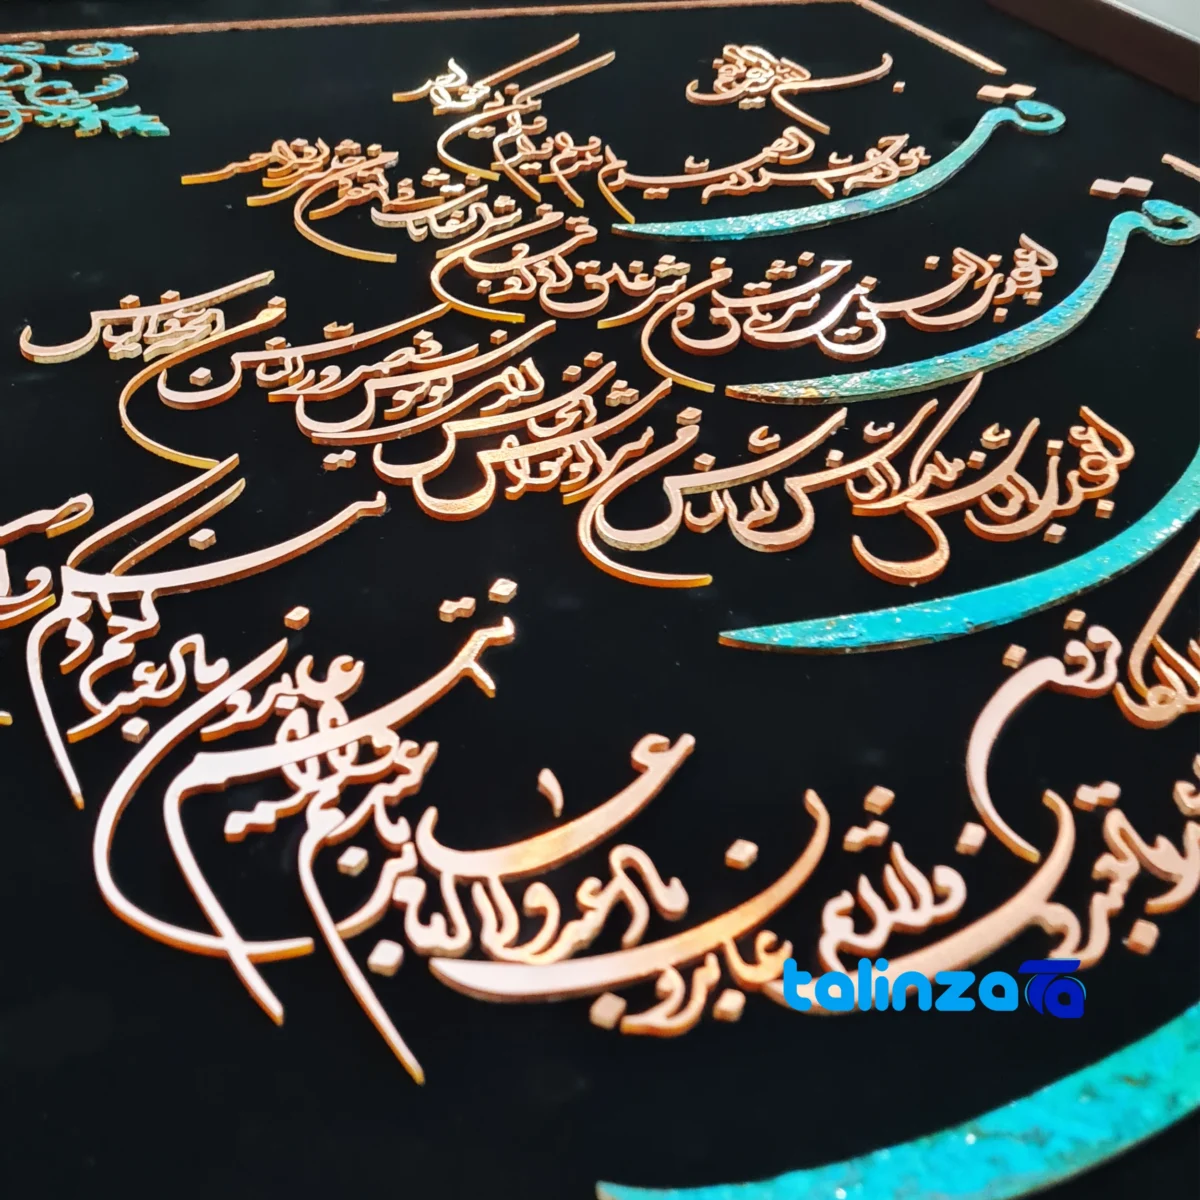 بسم الله الرحمن الرحیم
قل هو الله احد الله الصمد لم یلد و لم یولد و لم یکن له کفوا احد
قل اعوذ برب الفلق من شر ما خلق و من شر غاسق اذا وقب و من شر النفاثات فی العقد و من شر حاسد اذا حسد
قل اعوذ برب الناس ملک الناس اله الناس من شر الوسواس الخناس الذی یوسوس فی صدور الناس من الجنة و الناس
الکافرون لا اعبد ما تعبدون و لا انتم عابدون ما اعبد و لا انا عابد ما عبدتم و لا انتم عابدون ما اعبد لکم دینکم و
talinza